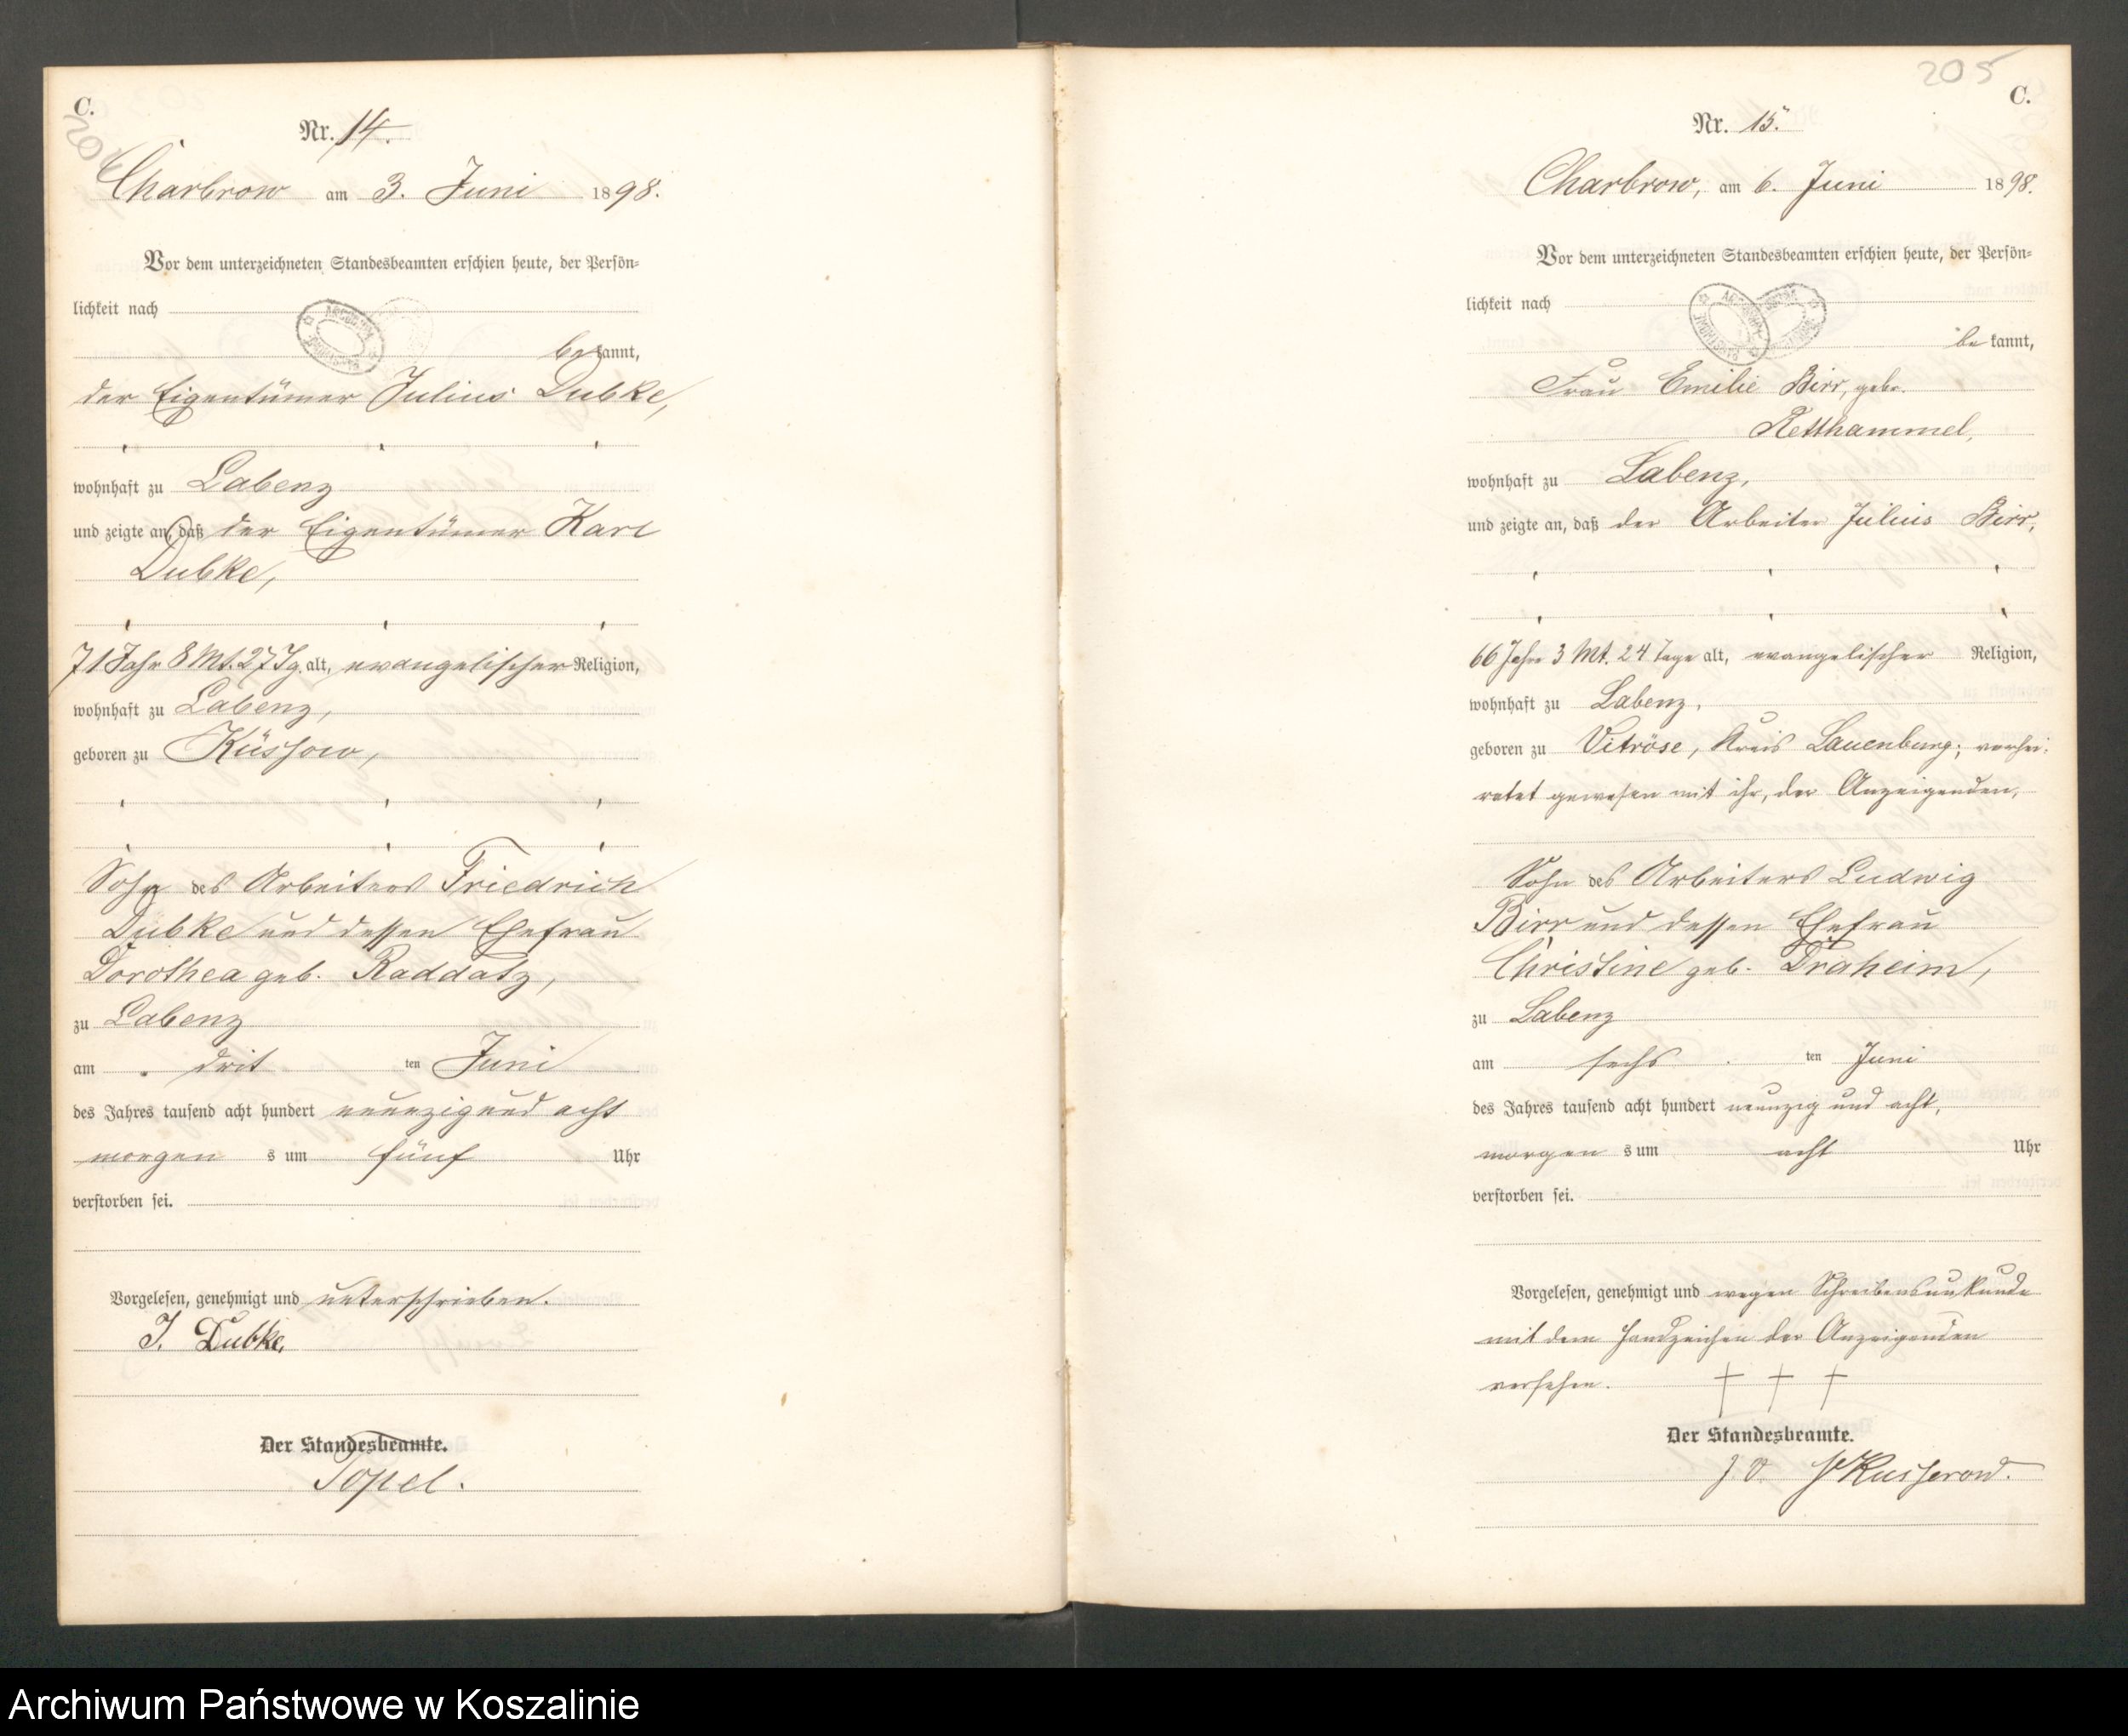 C.
Nr. 14.
Charbrow am 3. Juni 1898.
Vor dem unterzeichneten Standesbeamten erschien heute, der Persön-
lichkeit nach
bekannt,
der Eigentümer Julius Dubke,
wohnhaft zu Labenz
und zeigte an, daß der Eigentümer Karl
Dubke,
71 Jahr 8 Mt. 27 Tg. alt, evangelischer Religion,
wohnhaft zu Labenz,
geboren zu Küssow,
Sohn des Arbeiters Friedrich
Dubke und dessen Ehefrau
Dorothea geb. Raddatz,
zu Labenz
am drit ten Juni
des Jahres tausend acht hundert neunzig und acht
morgen s um fünf Uhr
verstorben sei.
Vorgelesen, genehmigt und unterschrieben.
J. Dubke.
Der Standesbeamte.
Topel.
205
C.
Nr. 15.
Charbrow, am 6. Juni 1898.
Vor dem unterzeichneten Standesbeamten erschien heute, der Persön-
lichkeit nach
bekannt,
Frau Emilie Birr, geb.
Retthammel,
wohnhaft zu Labenz,
und zeigte an, daß der Arbeiter Julius Birr,
66 Jahre 3 Mt. 24 Tage alt, evangelischer Religion,
wohnhaft zu Labenz,
geboren zu Vitröse, Kreis Lauenburg; verhei-
ratet gewesen mit ihr, der Anzeigenden,
Sohn des Arbeiters Ludwig
Birr und dessen Ehefrau
Christine geb. Draheim,
zu Labenz
am sechs ten Juni
des Jahres tausend acht hundert neunzig und acht,
morgen s um acht Uhr
verstorben sei.
Vorgelesen, genehmigt und wegen Schreibensunkunde
mit dem Handzeichen der Anzeigenden
versehen. † † †
Der Standesbeamte.
J. V. Kusserow.
Archiwum Państwowe w Koszalinie